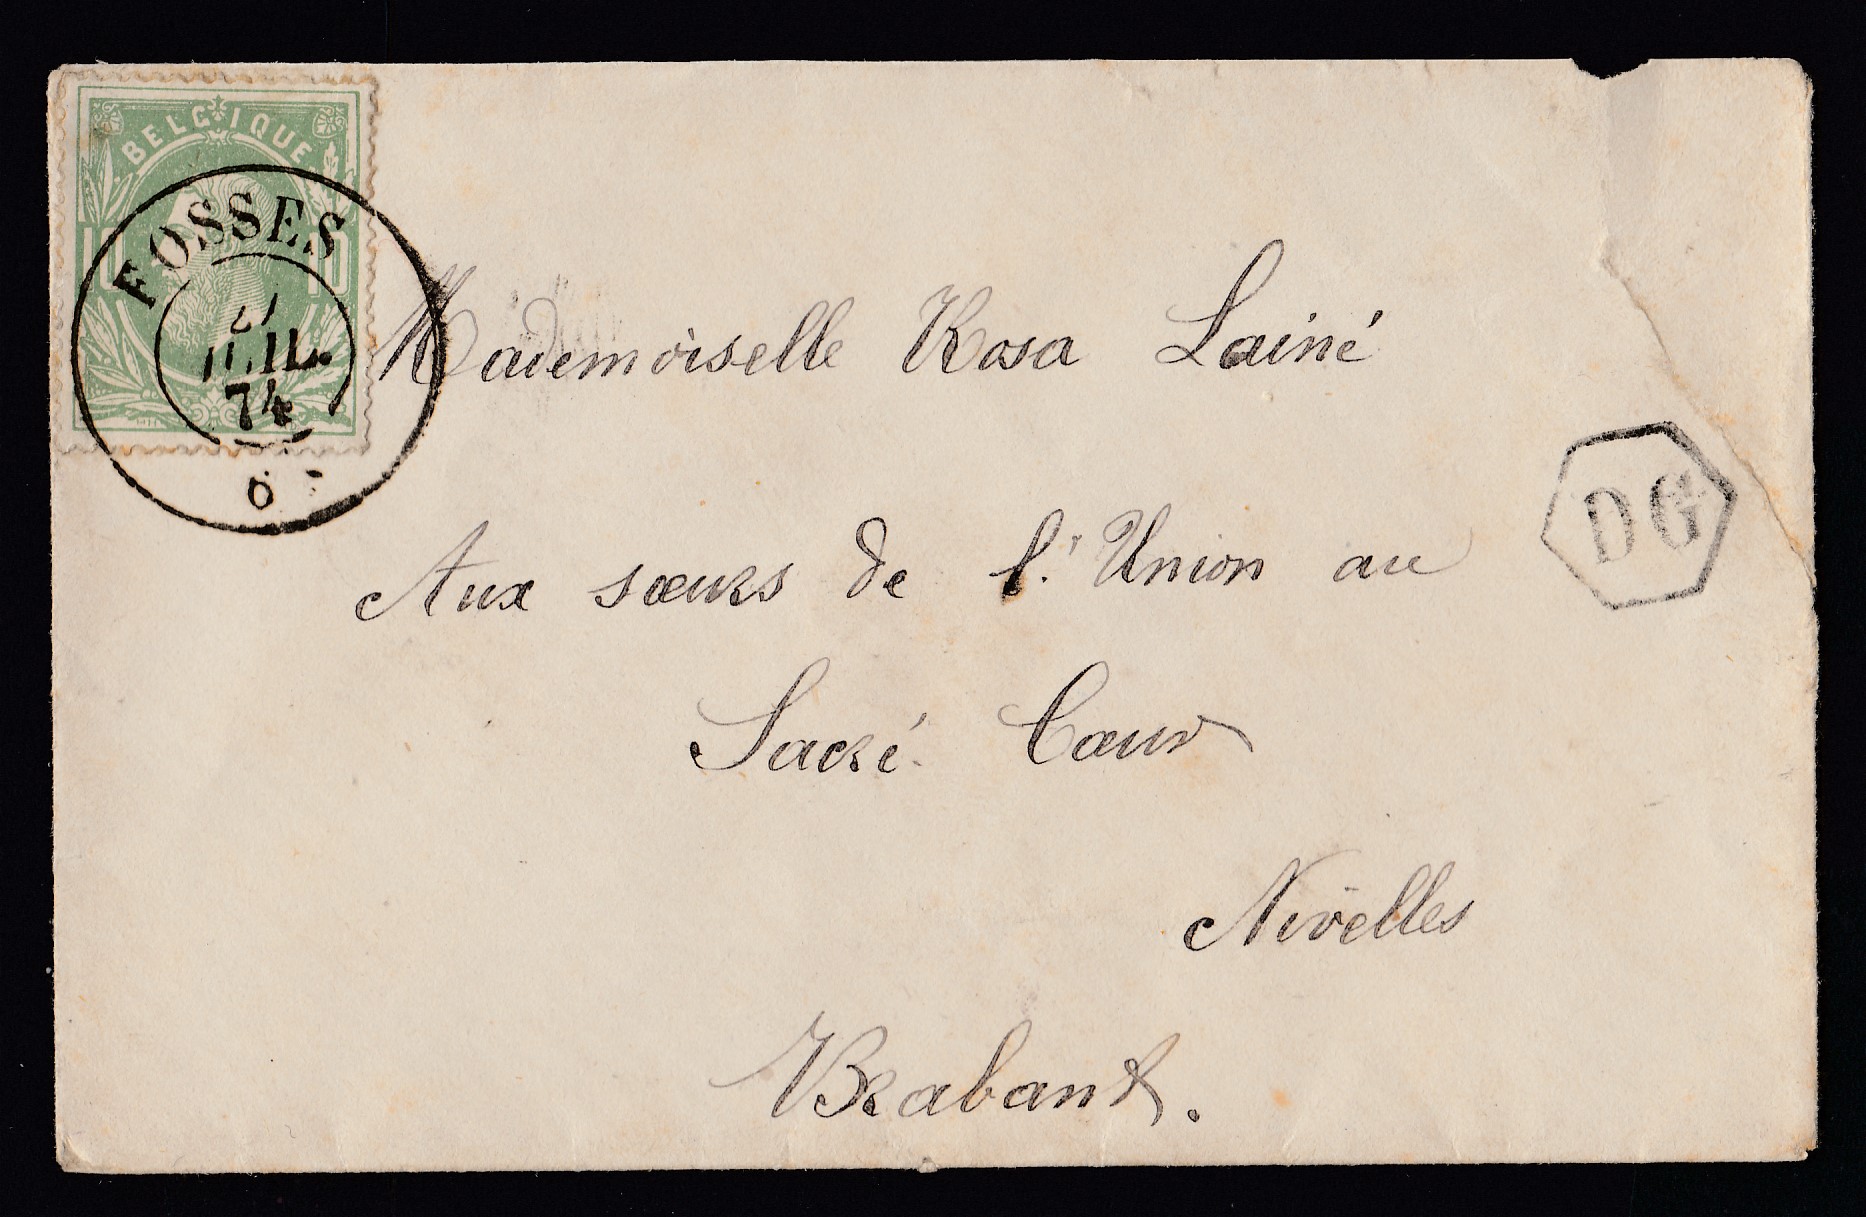 BELGIQUE
10 10
FOSSES
JUIL.
74
6
Mademoiselle Rosa Lainé
Aux sœurs de l'Union au
Sacré Cœur
DG
Nivelles
Brabant.